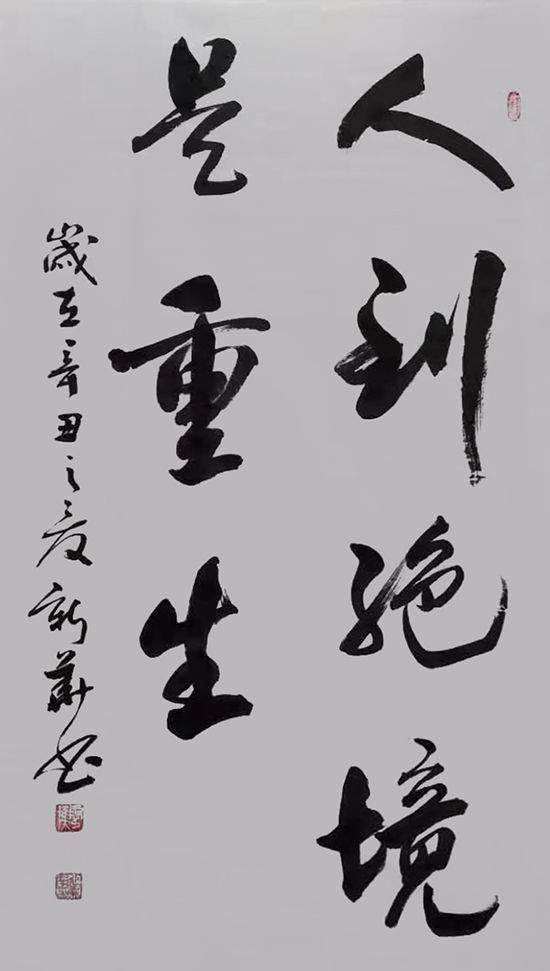 人到絶境
是重生
歲在辛丑之夏新華书